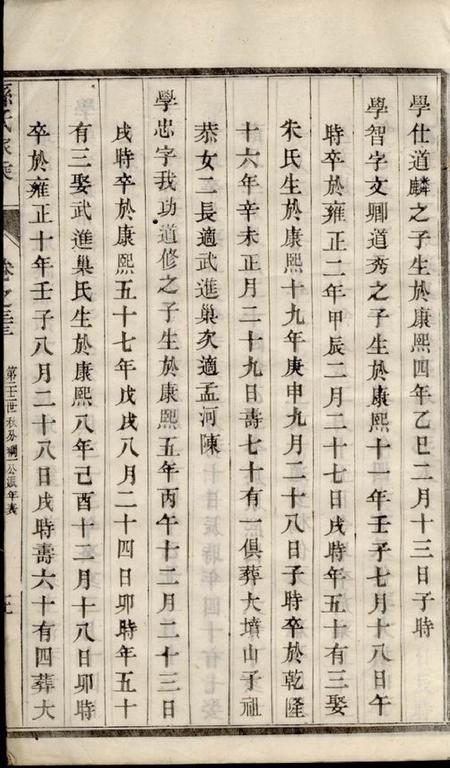 學仕道麟之子生於康熙四年乙巳二月十三日子時
學智字文卿道秀之子生於康熙十一年壬子七月十八日午
時卒於雍正二年甲辰二月二十七日戌時年五十有三娶
朱氏生於康熙十九年庚申九月二十八日子時卒於乾隆
十六年辛未正月二十九日壽七十有一俱葬大墳山子祖
恭女二長適武進巢次適孟河陳
學忠字我功道修之子生於康熙五年丙午十二月二十三日
戌時卒於康熙五十七年戊戌八月二十四日卯時年五十
有三娶武進巢氏生於康熙八年己酉十二月十八日卯時
卒於雍正十年壬子八月二十八日戌時壽六十有四葬大
孫氏家乘
卷之三
第三世
公派年表